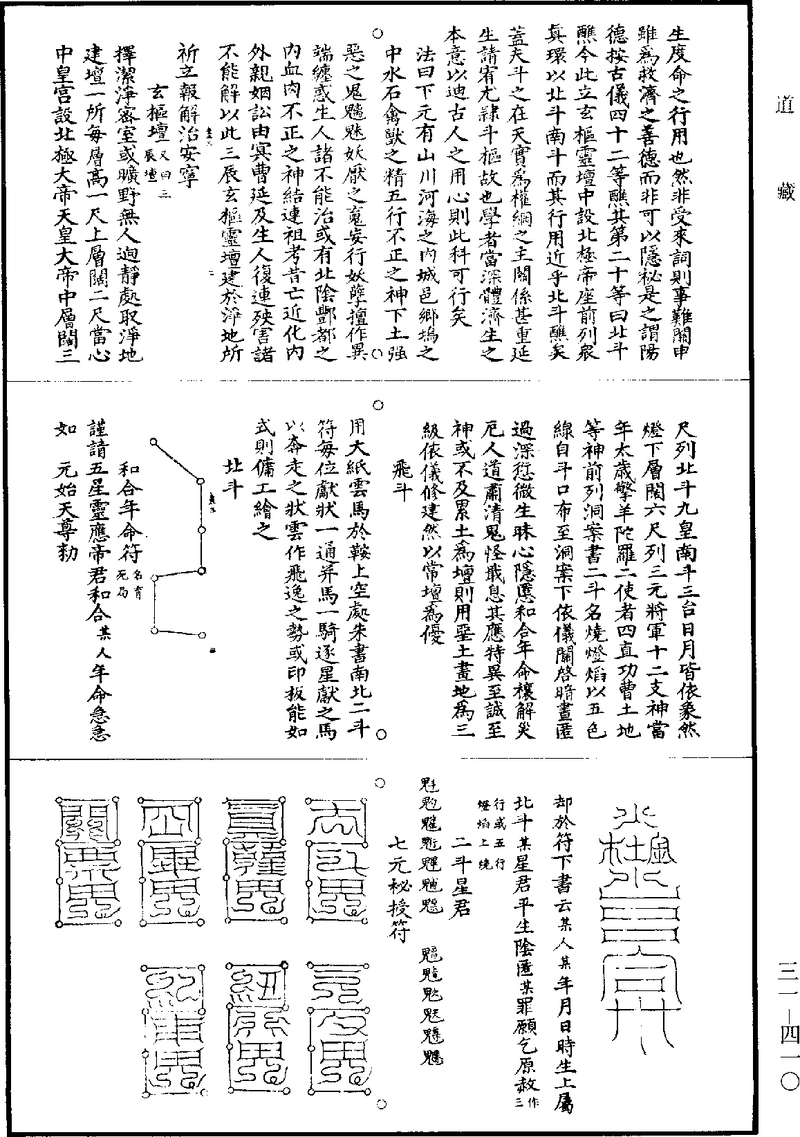 道藏
生度命之行用也然非受來詞則事難關申
雖為救濟之善德而非可以隱秘是之謂陽
德按古儀四十二等醮其第二十等曰北斗
醮今此立玄樞靈壇中設北極帝座前列衆
真環以北斗南斗而其行用近乎北斗醮矣
蓋夫斗之在天實為權綱之主關係甚重延
生請宥尤隸斗樞故也學者當深體濟生之
本意以迪古人之用心則此科可行矣
法曰下元有山川河海之內城邑鄉塢之
中水石禽獸之精五行不正之神下土强
惡之鬼魑魅妖厭之䰟妄行妖孽擅作異
端纏惑生人諸不能治或有北陰酆都之
內血肉不正之神結連祖考昔亡近化內
外親姻訟由冥曹延及生人復連殃害諸
不能解以此三辰玄樞靈壇建於淨地所
祈立報解治安寧
玄樞壇又曰三辰壇
擇潔淨密室或曠野無人迥靜處取淨地
建壇一所每層高一尺上層闊二尺當心
中皇宮設北極大帝天皇大帝中層闊三
尺列北斗九皇南斗三台日月皆依象然
燈下層闊六尺列三元將軍十二支神當
年太歲擎羊陀羅二使者四直功曹土地
等神前列洞案書二斗名燒燈焰以五色
線自斗口布至洞案下依儀關啓暗晝匿
過深愆微生昧心隱慝和合年命禳解災
厄人道肅清鬼怪戢息其應特異至誠至
神或不及累土為壇則用堊土畫地為三
級依儀修建然以常壇為優
飛斗
用大紙雲馬於鞍上空處朱書南北二斗
符每位獻狀一通并馬一騎逐星獻之馬
以奔走之狀雲作飛逸之勢或印板能如
式則傭工繪之
北斗
和合年命符名育死局
謹請五星靈應帝君和合某人年命急急
如 元始天尊勑
却於符下書云某人某年月日時生上屬
北斗某星君平生陰匿某罪願乞原赦作三
行或五行燈焰上燒
二斗星君
七元秘授符
三一—四一〇